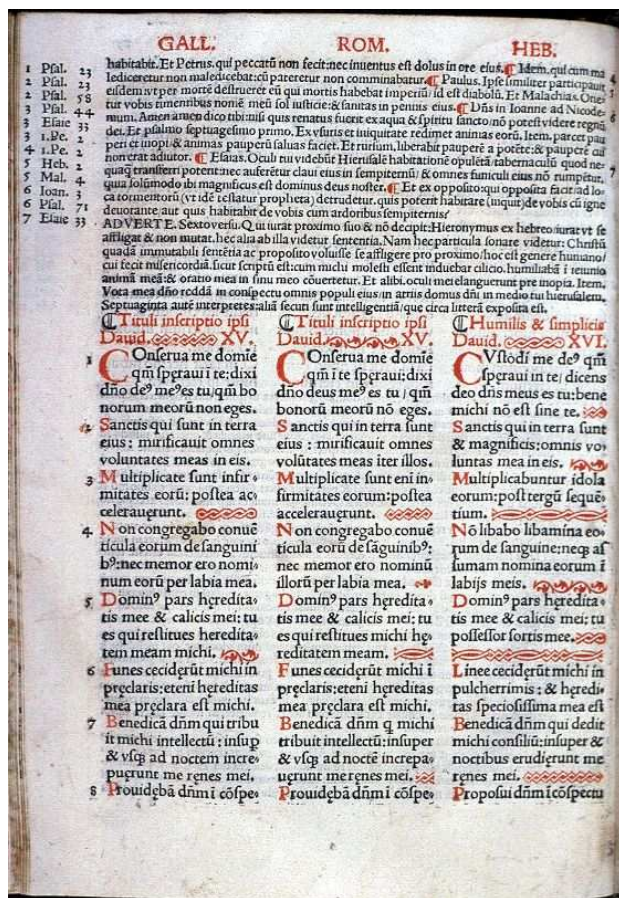 GALL. ROM. HEB.
1 Psal. 23
2 Psal. 23
2 Psal. 58
3 Psal. 44
3 Esaie 33
3 1.Pe. 2
4 1.Pe. 2
5 Heb. 2
5 Mal. 4
6 Ioan. 3
6 Psal. 71
7 Esaie 33
habitabit. Et Petrus. qui peccatū non fecit: nec inuentus est dolus in ore eius. ¶ Idem. qui cum ma
lediceretur non maledicebat: cū pateretur non comminabatur. ¶ Paulus. Ipse similiter participauit
eisdem: vt per mortē destrueret eū qui mortis habebat imperiū/ id est diabolū. Et Malachias. Orie
tur vobis timentibus nomē meū sol iusticie: & sanitas in pennis eius. ¶ Dn̄s in Ioanne ad Nicode
mum. Amen amen dico tibi: nisi quis renatus fuerit ex aqua & spiritu sancto/ nō potest videre regnū
dei. Et psalmo septuagesimo primo. Ex vsuris et iniquitate redimet animas eorū. Item. parcet pau
peri et inopi: & animas pauperū saluas faciet. Et rursum, liberabit pauperē a potēte: & pauperē cui
non erat adiutor. ¶ Esaias. Oculi tui videbūt Hierusalē habitationē opulētā/ tabernaculū quod ne
quaq̄ transferri potent: nec auferētur claui eius in sempiternū/ & omnes funiculi eius nō rumpētur.
quia solūmodo ibi magnificus est dominus deus noster. ¶ Et ex opposito: qui opposita facit ad lo
ca tormentorū (vt idē testatur propheta) detrudetur. quis poterit habitare (inquit) de vobis cū igne
deuorante. aut quis habitabit de vobis cum ardoribus sempiternis?
ADVERTE. Sexto versu. Qui iurat proximo suo & nō decipit: Hieronymus ex hebreo/ iurat vt se
affligat & non mutat. hec alia ab illa videtur sententia. Nam hec particula sonare videtur: Christū
quadā immutabili sentētia ac proposito voluisse se affligere pro proximo/ hoc est genere humano/
cui fecit misericordiā. sicut scriptū est: cum michi molesti essent induebar cilicio. humiliabā ī ieiunio
animā meā: & oratio mea in sinu meo cōuertetur. Et alibi. oculi mei languerunt pre inopia. Item.
Vota mea dn̄o reddā in conspectu omnis populi eius/ in atriis domus dn̄i in medio tui hierusalem.
Septuaginta autē interpretes: aliā secuti sunt intelligentiā/ que circa litterā exposita est.
¶ Tituli inscriptio ipsi
Dauid. XV.
1 COnserua me domie
qm̄ speraui ī te: dixi
dn̄o deꝰ meꝰ es tu/ qm̄ bo
norum meorū non eges.
2 Sanctis qui sunt in terra
eius: mirificauit omnes
voluntates meas in eis.
3 Multiplicate sunt infir
mitates eorū: postea ac
celerauerunt.
4 Non congregabo conuē
ticula eorum de sanguini
bꝰ: nec memor ero nomi
num eorū per labia mea.
5 Dominꝰ pars hęredita
tis mee & calicis mei: tu
es qui restitues heredita
tem meam michi.
6 Funes ceciderūt michi in
pręclaris: eteni hęreditas
mea pręclara est michi.
7 Benedicā dn̄m qui tribu
it michi intellectū: insup
& vsq; ad noctem incre
puęrunt me ręnes mei.
8 Prouidębā dn̄m ī cōspe
¶ Tituli inscriptio ipsi
Dauid. XV.
COnserua me domīe
qm̄ ī te spęraui: dixi
dn̄o deus meꝰ es tu/ qm̄
bonorū meorū nō eges.
Sanctis qui in terra sunt
eius: mirificauit omnes
volūtates meas īter illos.
Multiplicate sunt enī in
firmitates eorum: postea
accelerauęrunt.
Non congregabo conuē
ticula eorū de sāguinibꝰ:
nec memor ero nominū
illorū per labia mea.
Dominꝰ pars hęredita
tis mee & calicis mei: tu
es qui restitues michi hę
reditatem meam.
Funes ceciderūt michi ī
pręclaris: eteni hęreditas
mea pręclara est michi.
Benedicā dn̄m q michi
tribuit intellectū: insuper
& vsq; ad noctē increpa
uęrunt me ręnes mei.
Prouidębā dn̄m ī cōspe
¶ Humilis & simplicis
Dauid. XVI.
CVstodi me deꝰ qm̄
spęraui in te/ dicens
deo dn̄s meus es tu: bene
michi nō est sine te.
Sanctis qui in terra sunt
& magnificis: omnis vo
luntas mea in eis.
Multiplicabuntur idola
eorum: post tergū sequē
tium.
Nō libabo libamina eo
rum de sanguine: neq; as
sumam nomina eorum ī
labijs meis.
Dominꝰ pars hęredita
tis mee & calicis mei: tu
possessor sortis mee.
Linee ceciderūt michi in
pulcherrimis: & hęredi
tas speciosissima mea est
Benedicā dn̄m qui dedit
michi consiliū: insuper &
noctibus erudięrunt me
ręnes mei.
Proposui dn̄m ī cōspectu